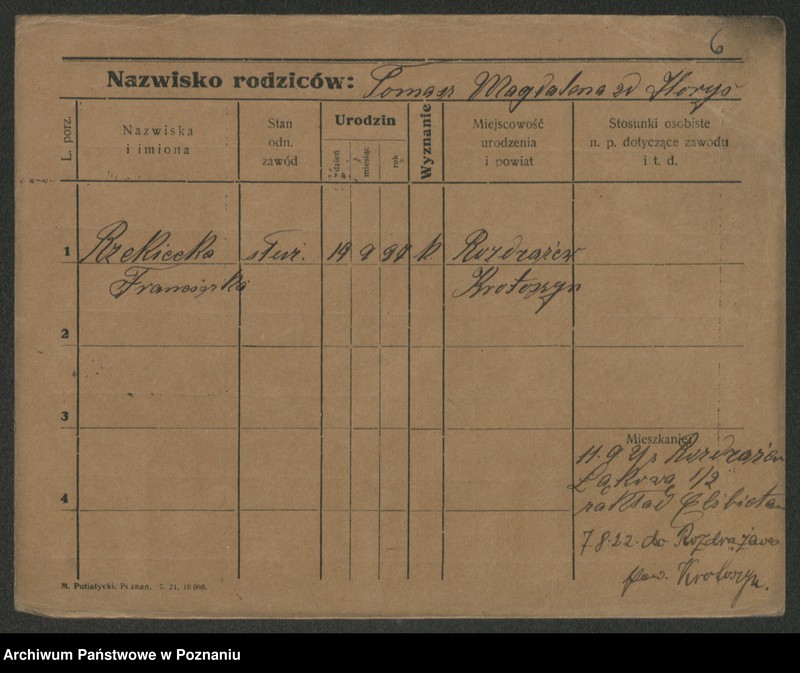 6
Nazwisko rodziców: Tomasz Magdalena zd
L. porz.
Nazwiska i imiona
Stan odn. zawód
Urodzin
dzień
miesiąc
rok
Wyznanie
Miejscowość urodzenia i powiat
Stosunki osobiste n. p. dotyczące zawodu i t. d.
1 służ. 19 9 k Rozdrażew
Franciszka Krotoszyn
2
3
Mieszkanie
11.9 Rozdrażew
Łąkowa 1/2
4
zakład Elżbietan
7.8.22. do Rozdrażewa
pow. Krotoszyn.
M. Putiatycki, Poznań. 7. 21. 10 000.
Archiwum Państwowe w Poznaniu